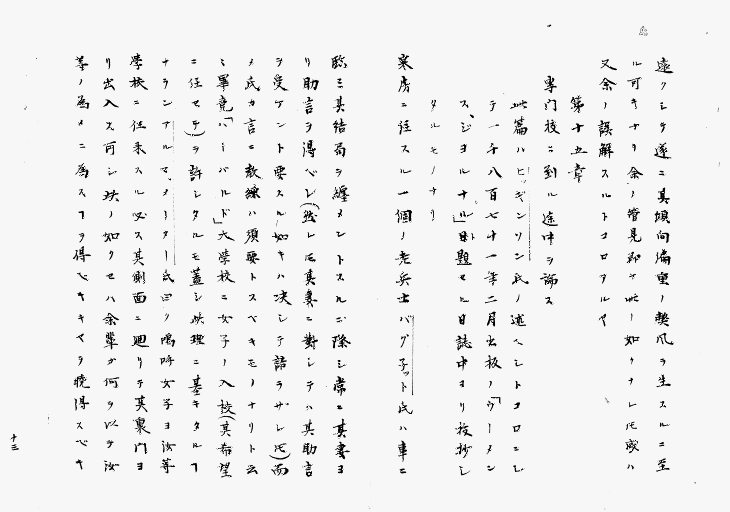 遠クシテ遂ニ其傾向偏重ノ弊風ヲ生スルニ至
ル可キナリ余ノ管見即チ此ノ如クナレ圧或ハ
又余ノ誤解スルトコロアルヤ
第十五章
専門校ニ到ル途中ヲ論ス
此篇ハヒッギンソン氏ノ述ヘシトコロニシ
テ一千八百七十一年二月出板ノ「ウーメン
ス、ジヨルナル」ト題セル日誌中ヨリ抜抄シ
タルモノナリ
寒房ニ住スル一個ノ老兵士バグ子ット氏ハ車ニ
臨ミ其結局ヲ纏メントスルニ際シ常ニ其妻ヨ
リ助言ヲ得ベシ(然レ圧其妻ニ對シテハ其助言
ヲ受ケント要スル如キハ決シテ語ラザレ圧)而
メ氏カ言ニ教練ハ須要トスベキモノナリト云
ミ畢竟「ハーバルド」大學校ニ女子ノ入校(其希望
ニ任セテ)ヲ許シタルモ蓋シ此理ニ基キタルヿ
ナランアルマ、メーター氏曰ク嗚呼女子ヨ汝等
學校ニ往来スル必ス其側面ニ廻リテ其裏門ヨ
リ出入ス可シ此ノ如クセハ余輩カ何ヲ以テ汝
等ノ為メニ為スヿヲ得ベキヤヲ曉得スベキ
十三